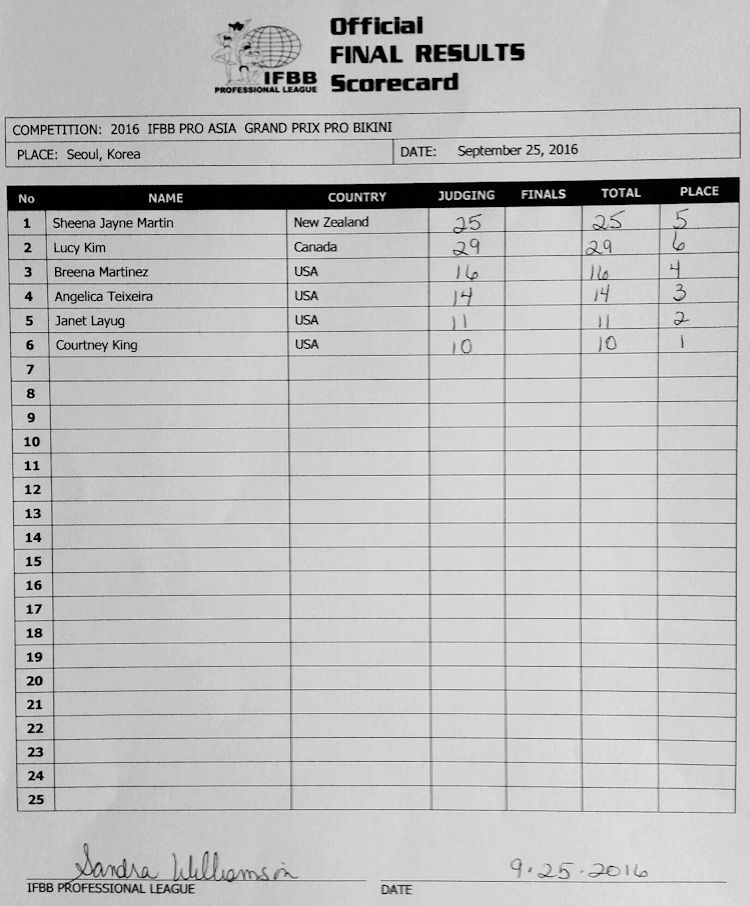 Official
FINAL RESULTS
Scorecard
IFBB
PROFESSIONAL LEAGUE
COMPETITION: 2016 IFBB PRO ASIA GRAND PRIX PRO BIKINI
PLACE: Seoul, Korea DATE: September 25, 2016
No NAME COUNTRY JUDGING FINALS TOTAL PLACE
1 Sheena Jayne Martin New Zealand 25 25 5
2 Lucy Kim Canada 29 29 6
3 Breena Martinez USA 16 16 4
4 Angelica Teixeira USA 14 14 3
5 Janet Layug USA 11 11 2
6 Courtney King USA 10 10 1
7
8
9
10
11
12
13
14
15
16
17
18
19
20
21
22
23
24
25
Sandra Williamson 9.25.2016
IFBB PROFESSIONAL LEAGUE DATE